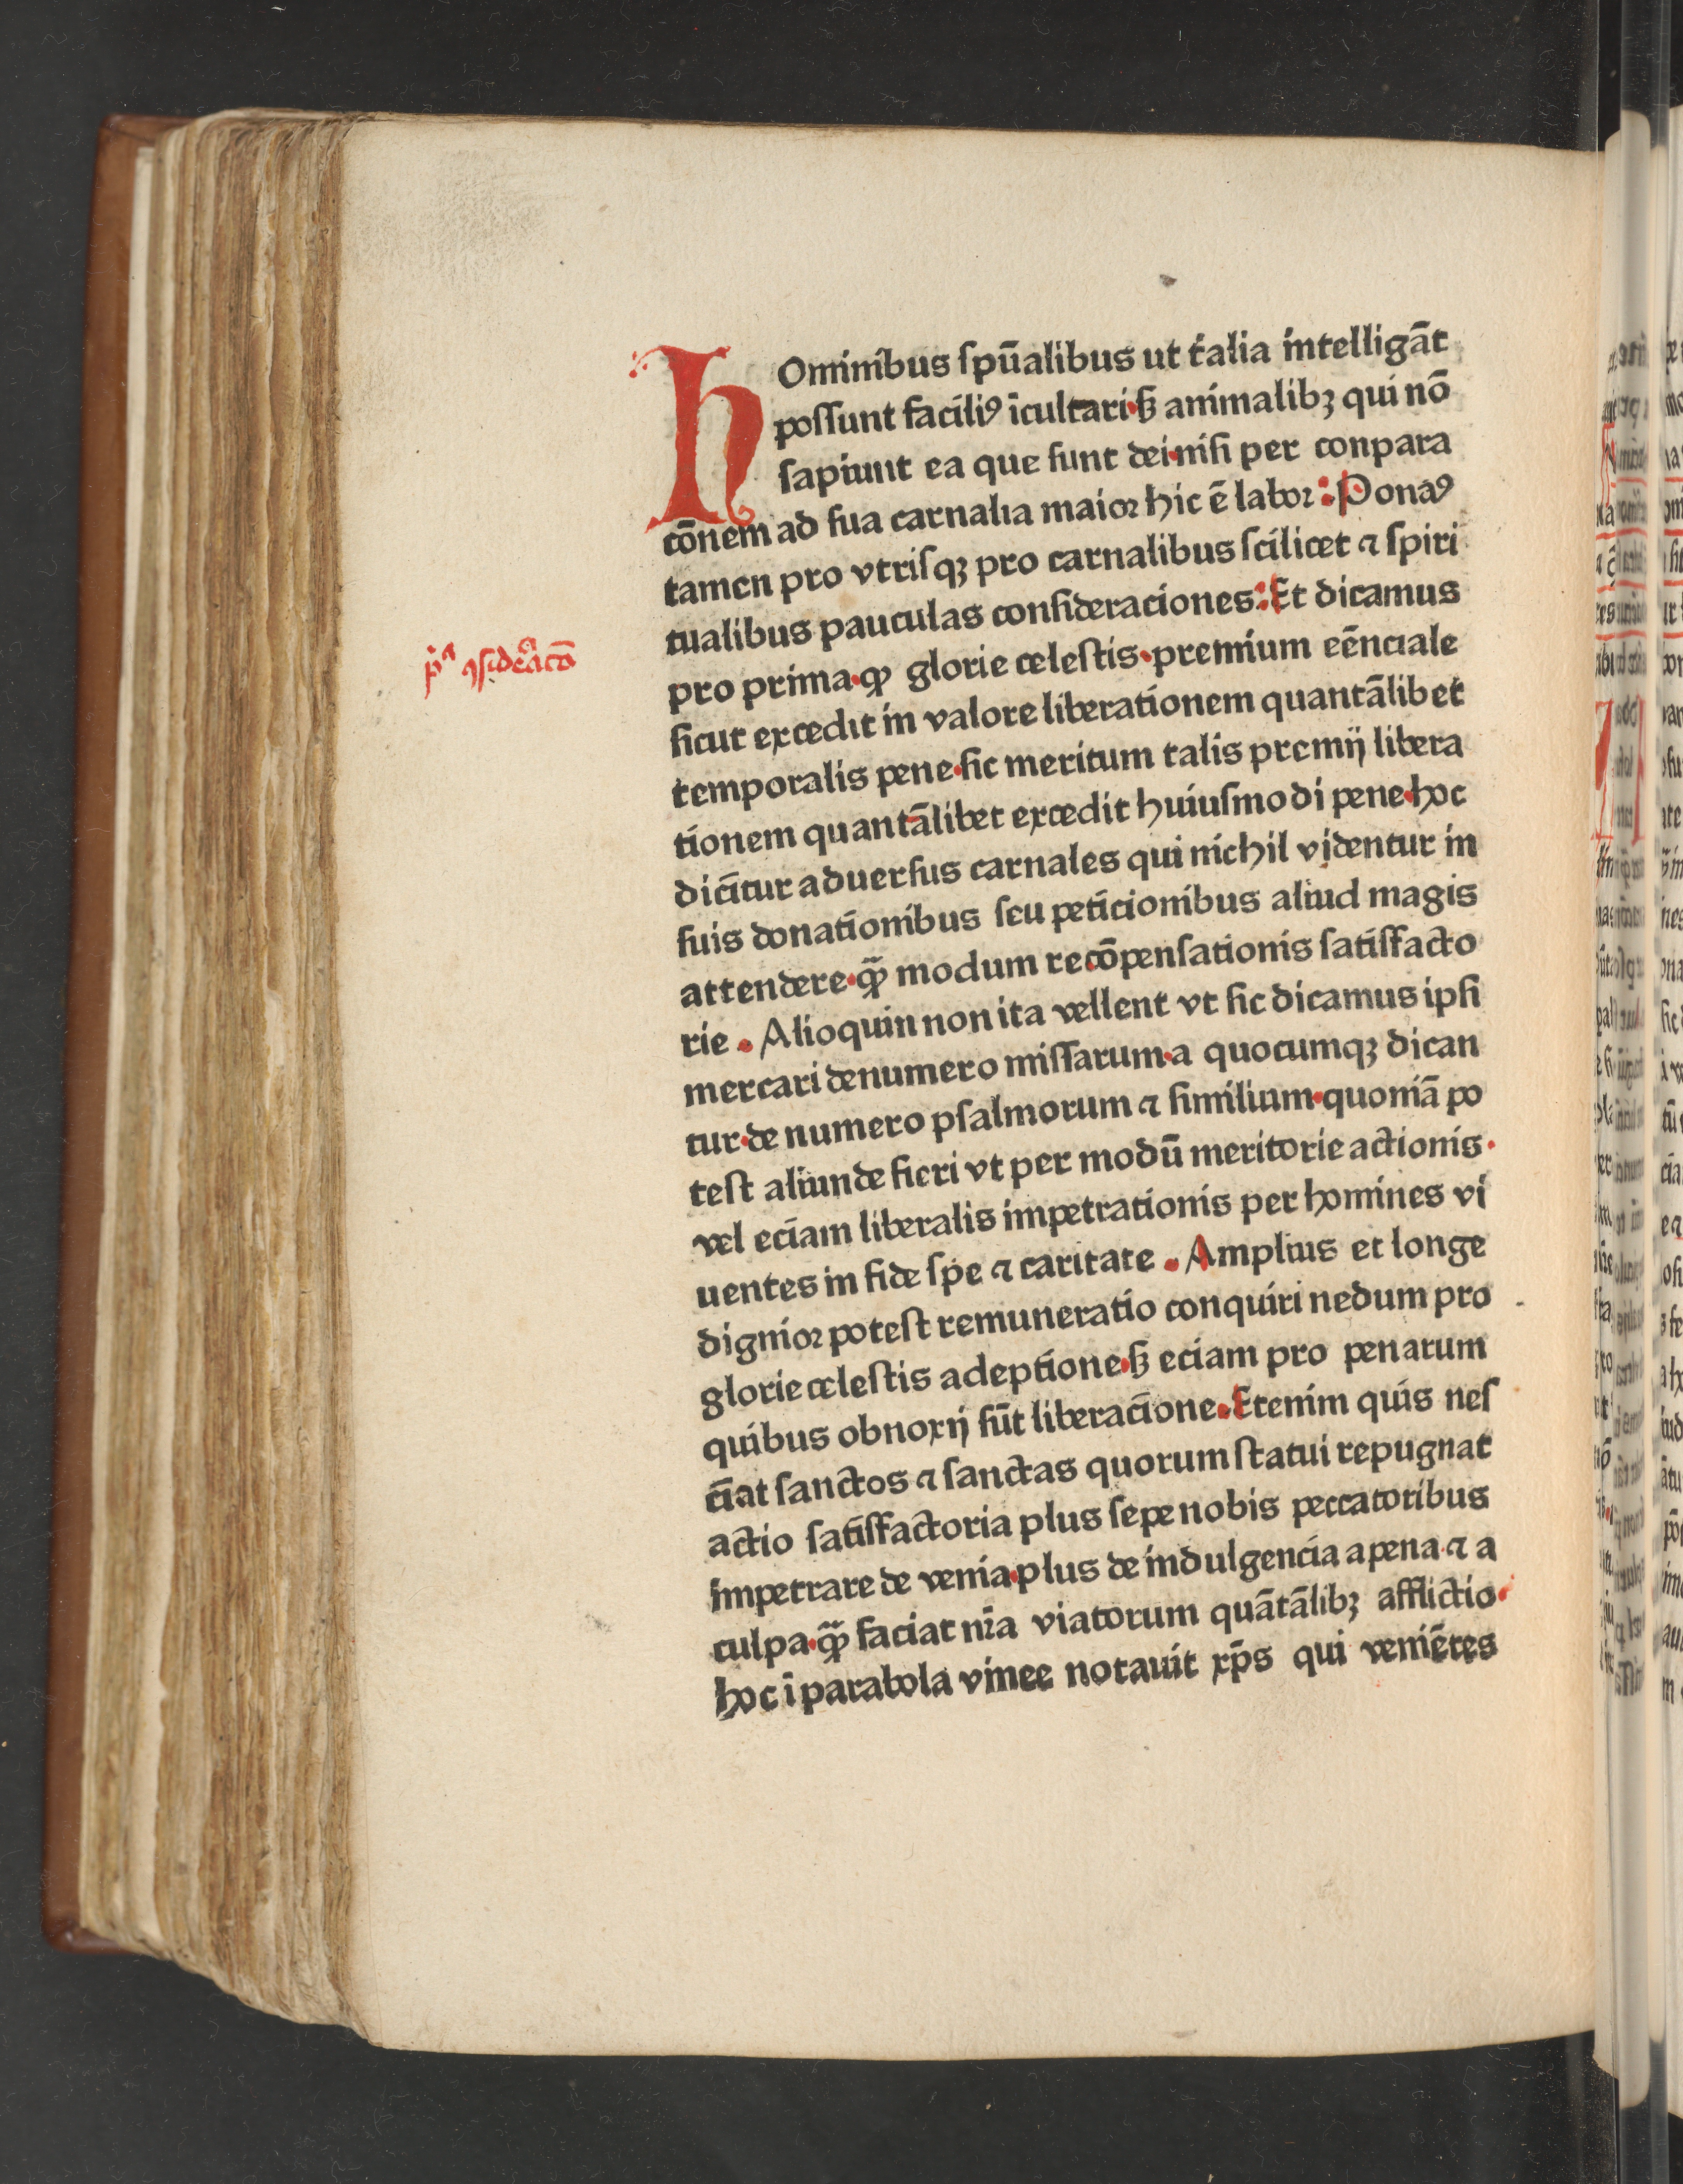 HOminibus ſpūalibus ut talia intelligāt
poſſunt faciliꝰ īcultari·ſꝫ animalibꝫ qui nō
ſapiunt ea que ſunt dei·niſi per conpara
cōnem ad ſua carnalia maioꝛ hic ē laboꝛ : Ponaꝰ
tamen pro vtriſqꝫ pro carnalibus ſcilicet ⁊ ſpiri
tualibus pauculas conſideraciones : Et dicamus
p̄ᵃ ꝯſideᵃcō
pro prima·ꝙ glorie celeſtis·premium eēnciale
ſicut excedit in valore liberationem quantālibet
temporalis pene·ſic meritum talis premij libera
tionem quantālibet excedit huiuſmodi pene·hoc
dicitur aduerſus carnales qui nichil videntur in
ſuis donationibus ſeu peticionibus aliud magis
attendere·ꝙ̃ modum recōpenſationis ſatiſfacto
rie . Alioquin non ita vellent vt ſic dicamus ipſi
mercari de numero miſſarum·a quocumqꝫ dican
tur·de numero pſalmorum ⁊ ſimilium·quoniā po
teſt aliunde fieri vt per modū meritorie actionis·
vel eciam liberalis impetrationis per homines vi
uentes in fide ſpe ⁊ caritate . Amplius et longe
dignioꝛ poteſt remuneratio conquiri nedum pro
glorie celeſtis adeptione·ſꝫ eciam pro penarum
quibus obnoxij ſūt liberacione . Etenim quis neſ
ciat ſanctos ⁊ ſanctas quorum ſtatui repugnat
actio ſatiſfactoria plus ſepe nobis peccatoribus
impetrare de venia·plus de indulgencia a pena·⁊ a
culpa·ꝙ̃ faciat nr̄a viatorum quātālibꝫ afflictio·
hoc ī parabola vinee notauit xp̄s qui veniētes